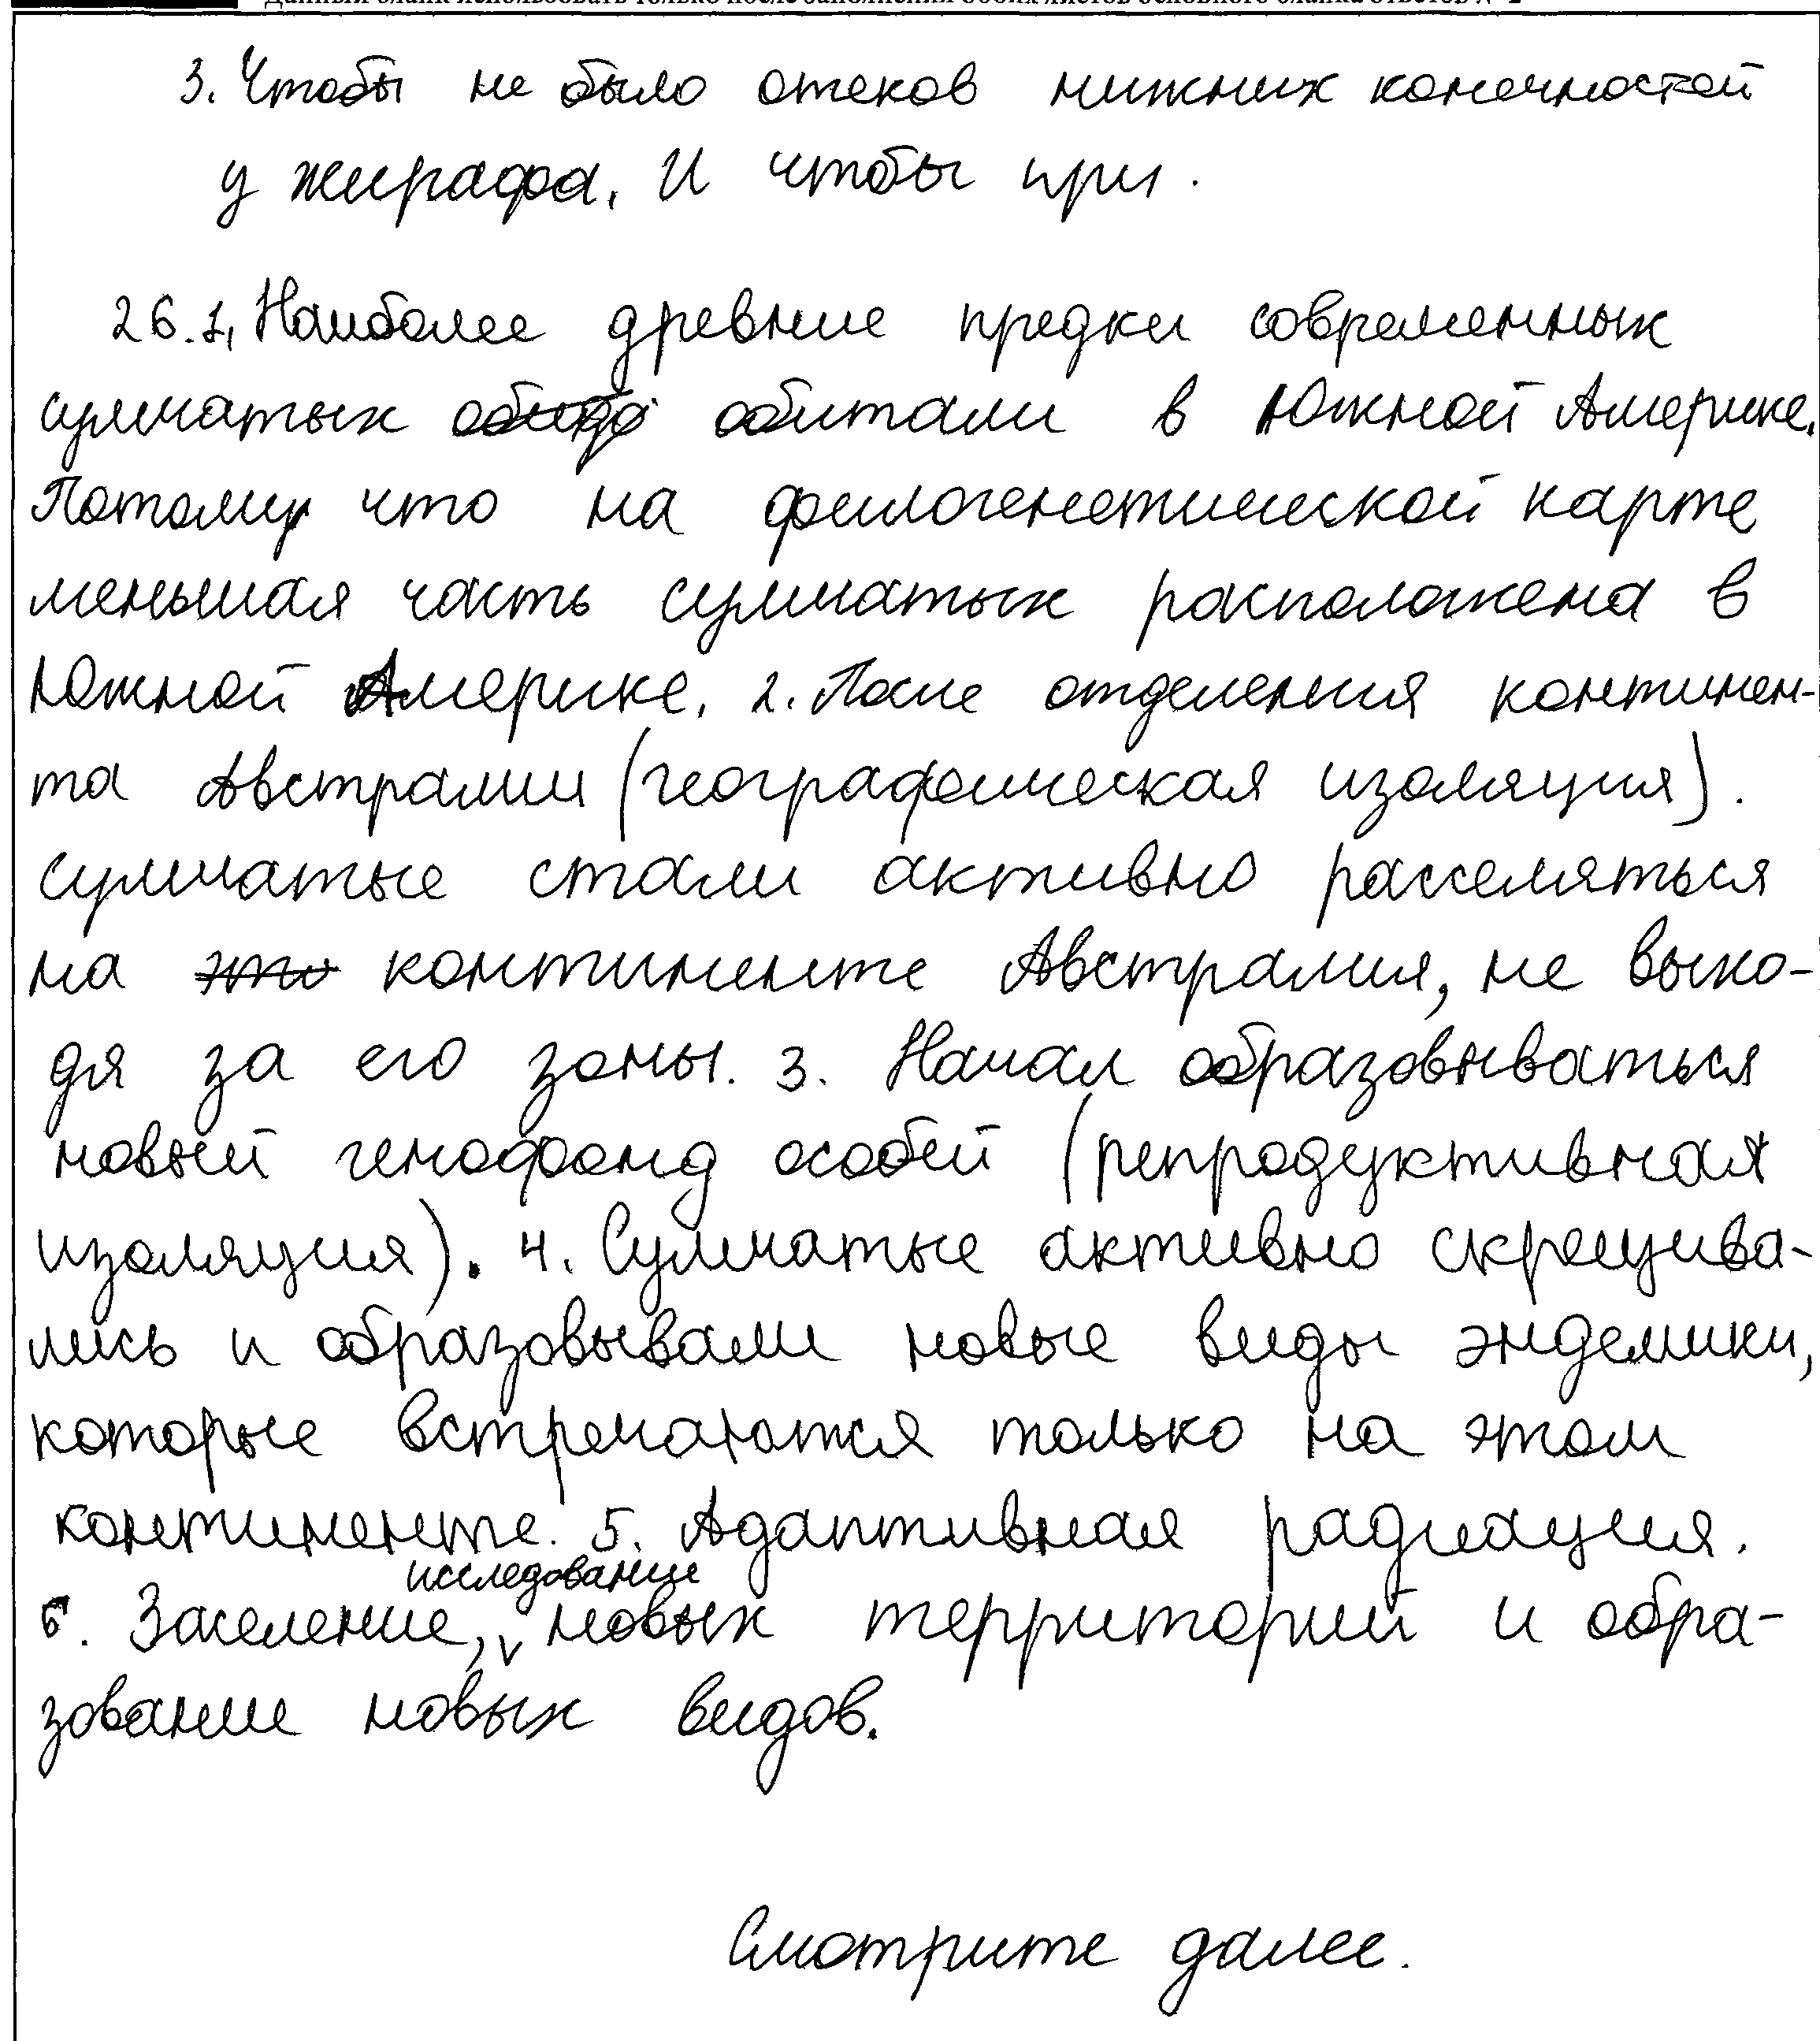 Данный бланк использовать только после заполнения обоих листов основного бланка ответов № 2
3. Чтобы не было отеков нижних конечностей
у жирафа. И чтобы при.
26.1. Наиболее древние предки современных
сумчатых обитали в Южной Америке.
Потому что на филогенетической карте
меньшая часть сумчатых расположена в
Южной Америке. 2. После отделения континен-
та Австралии (географическая изоляция).
сумчатые стали активно расселяться
на это континенте Австралия, не выхо-
дя за его зоны. 3. Начал образовываться
новый генофонд особей (репродуктивная
изоляция). 4. Сумчатые активно скрещива-
лись и образовывали новые виды эндемики,
которые встречаются только на этом
континенте. 5. Адаптивная радиация.
исследование
6. Заселение, новых территорий и обра-
зование новых видов.
Смотрите далее.